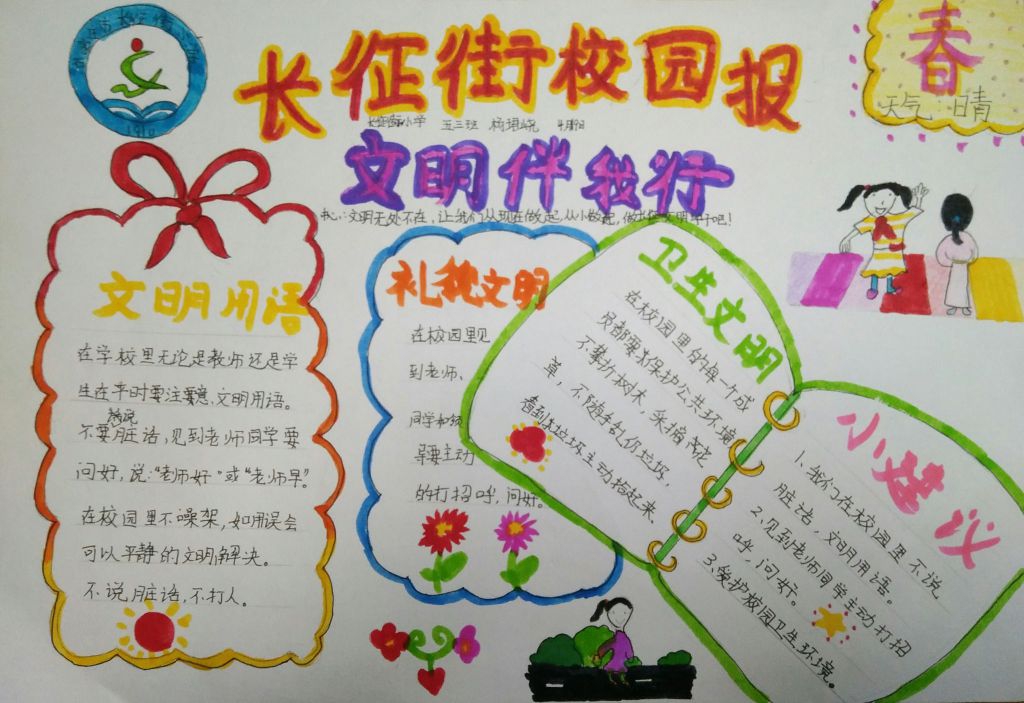 1910
长征街校园报
长征街小学 五三班 杨珺峣 4月19日
文明伴我行
文明无处不在，让我们从现在做起，从小做起，做长征文明学子吧！
春
天气：晴
文明用语
在学校里无论是教师还是学
生在平时要注要意、文明用语。
不要脏话，见到老师同学要
问好，说：“老师好”或“老师早”。
在校园里不噪架，如用误会
可以平静的文明解决。
不说脏话，不打人。
礼貌文明
在校园里见
到老师、
同学和领
导要主动
的打招呼，问好。
卫生文明
在校园里的每一个成
员都要求保护公共环境
不攀折树木，采摘花
草，不随手乱仍垃圾，
看到垃圾主动捨起来。
小建议
1、我们在校园里不说
脏话，文明用语。
2、见到老师同学主动打招
呼，问好。
3、爱护校园卫生环境。